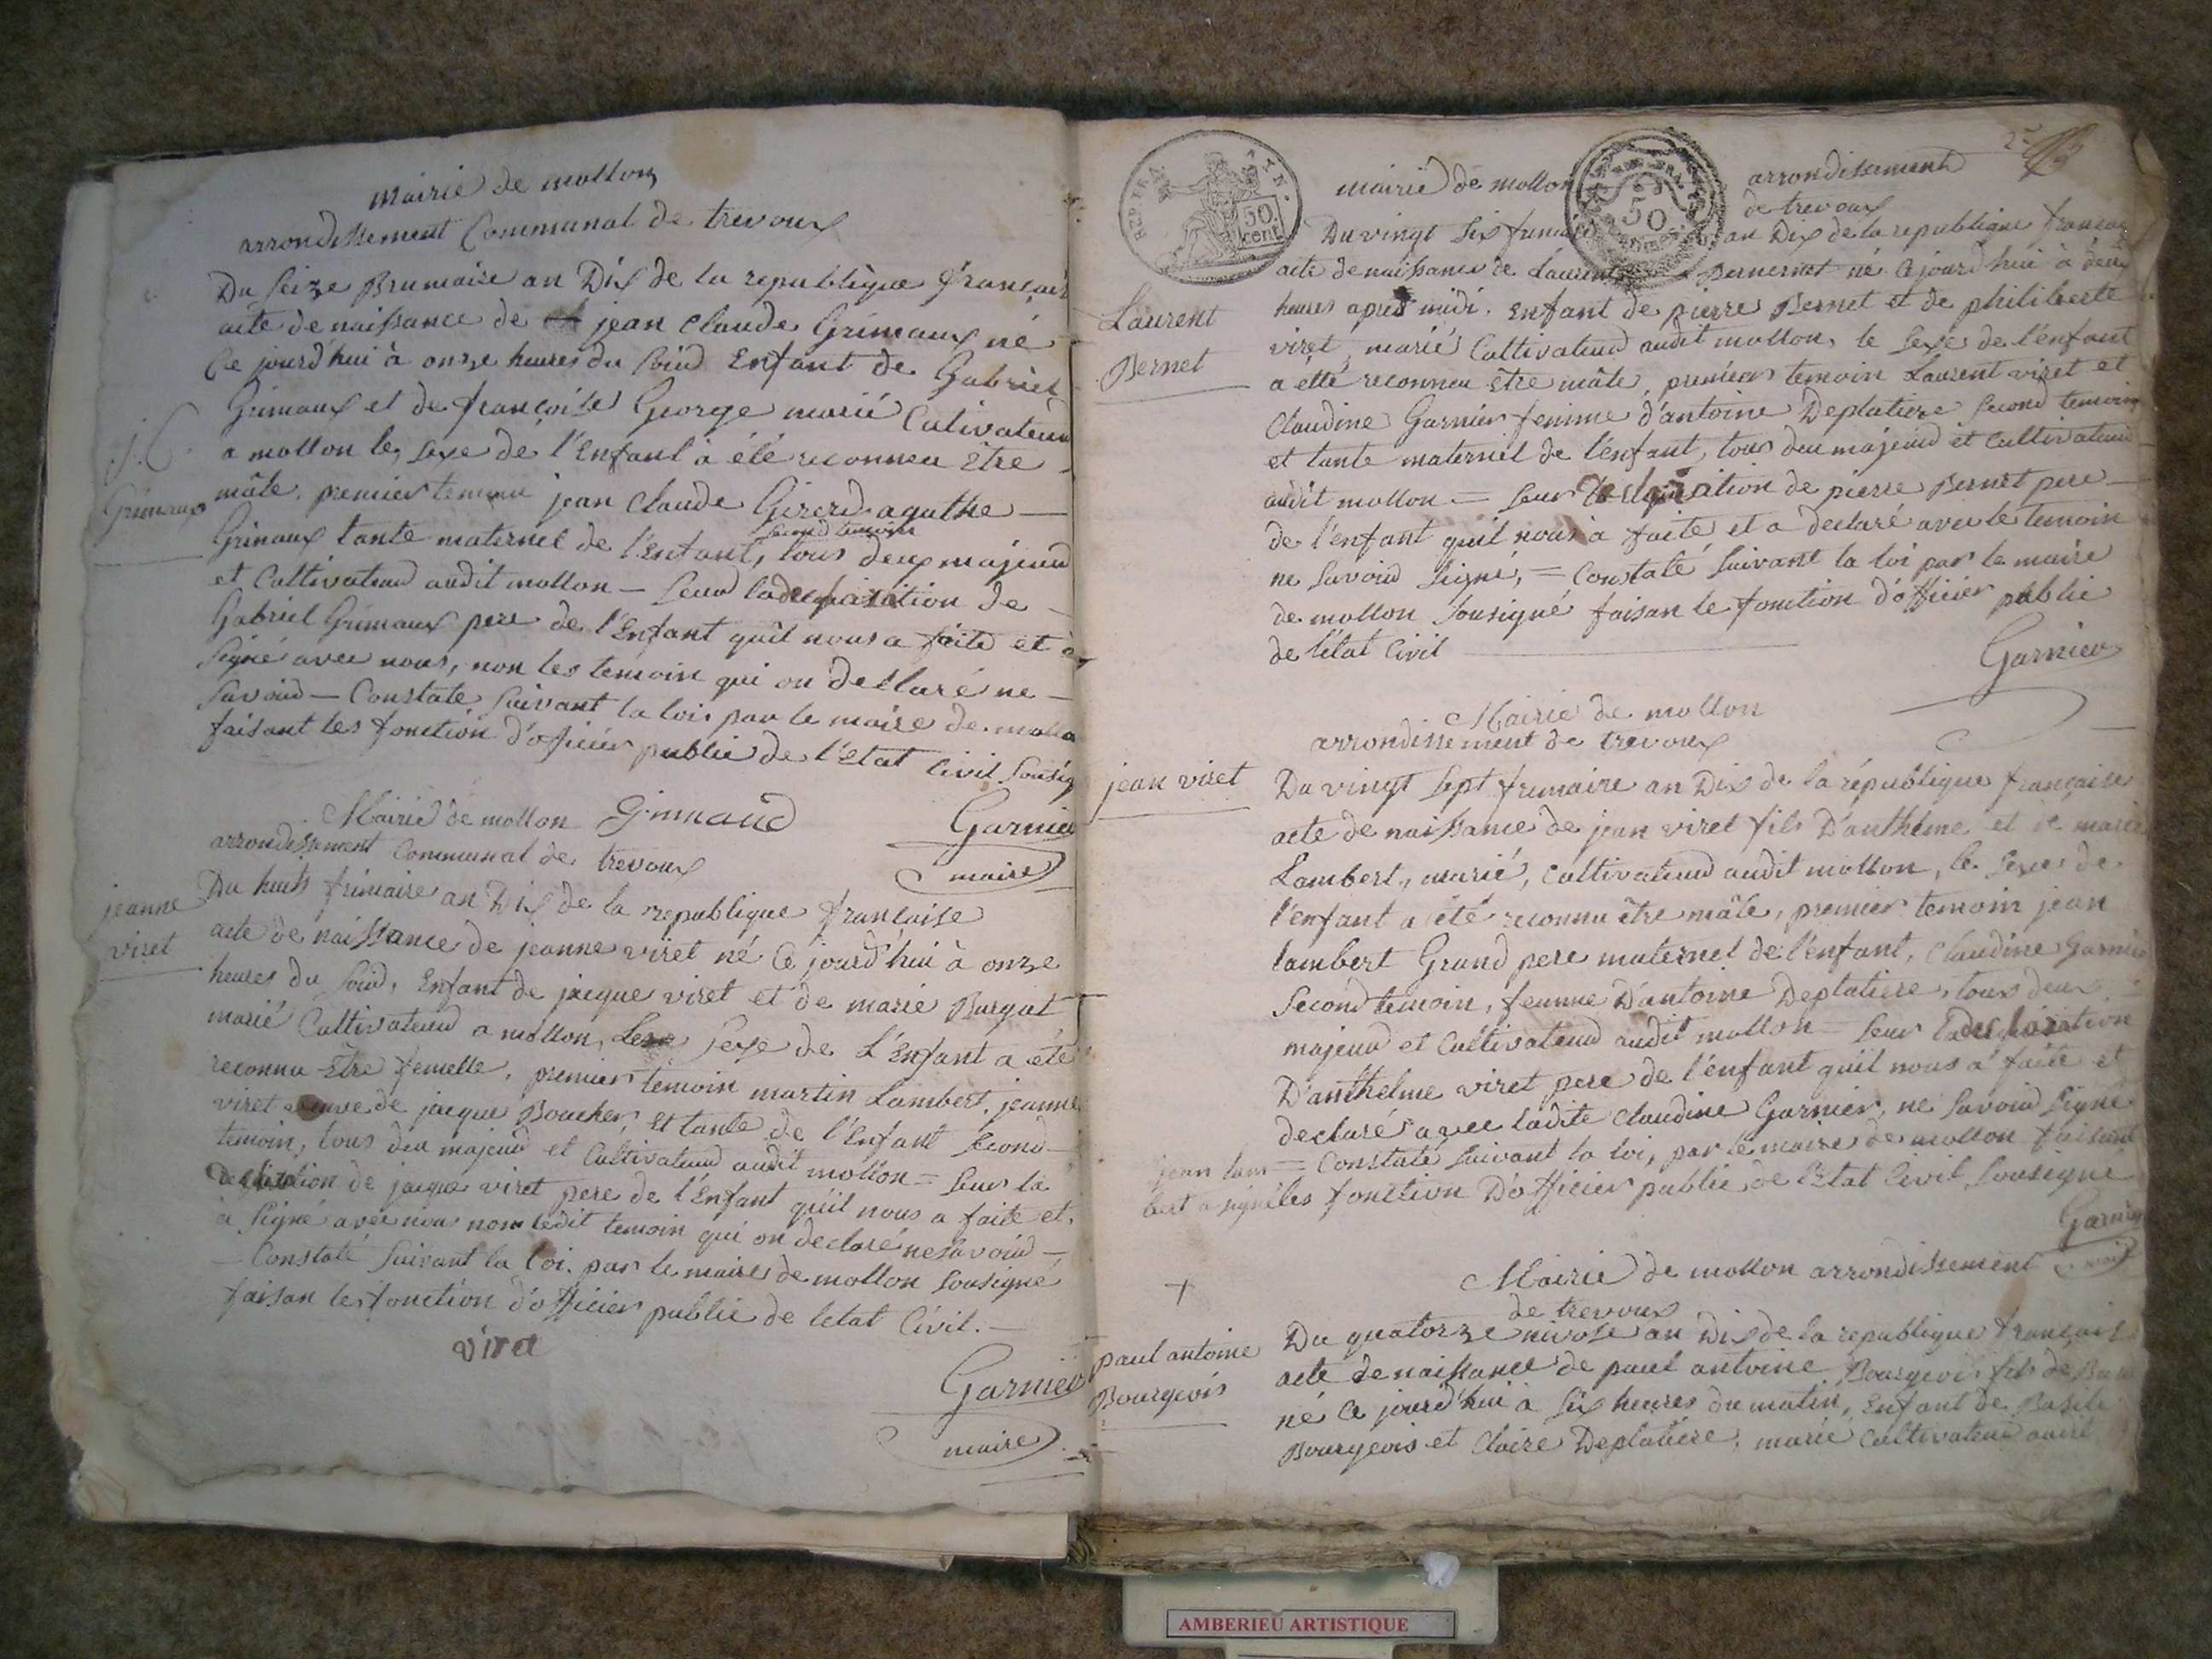 mairie de mollon
arrondissement Communal de trevoux
Du Seize Brumaire an Dix de la republique français
acte de naissance de jean Claude Grimaux né
Ce jourd'hui à onze heures du Soird Enfant de Gabriel
Grimaux et de françoise George marié Cutivateurd
J. C.
a mollon le Sexe de l'Enfant à été reconneu Etre
Grimaux
mâle, premier temoin jean Claude Girerd agathe
second temoins
Grimaux tante maternel de l'Enfant, tous deux majeurd
et Cultivateurd audit mollon - Seur la declaration de
Gabriel Grimaux pere de l'Enfant quil nous a faite et à
Signé avec nous, non les temoin qui on declaré ne
Savoird - Constate Suivant la loi, par le maire de mollo
faisant les fonction d'oficier public de l'Etat Civil Sousig
Grimaud
Garnier
maire
Mairie de mollon
arrondissement Communal de trevoux
jeanne
viret
Du huit frimaire an Dix de la republique francaise
acte de naissance de jeanne viret né Ce jourd'hui à onze
heures du Soird, Enfant de jacque viret et de marie Burgat
marié Cultivateurd a mollon, Sexe de L'Enfant a eté
reconnu Etre femelle, premier temoin martin Lambert, jeanne
viret veuve de jacque Boucher, Et tante de l'Enfant Second
temoin, tous deu majeurd et Cultivateurd audit mollon = Sur la
declaration de jacque viret pere de l'Enfant quil nous a faite et,
à Signé avec nous non ledit temoin qui on declaré ne Savoird -
- Constaté Suivant la loi, par le maire de mollon Sousigné
faisan les fonction d'officier public de letat Civil. -
viret
Garnier
maire
REP. FRA
50.
cent
50
2e
mairie de mollon
arrondissement
de trevoux
Du vingt Six frimaire an Dix de la republique français
acte de naissance de Laurent Bernernet né Ce jourd'hui à deux
Laurent
Bernet
heures apres midi, Enfant de pierre Bernet et de philiberte
viret, marié Cultivateurd audit mollon, le Sexe de l'enfant
a été reconneu Etre mâle, premier temoin Laurent viret et
Claudine Garnier femme d'antoine Deplatiere Second temoin
et tante maternel de l'enfant, tous deu majeurd et Cultivateurd
audit mollon = Seur declaration de pierre Bernet pere
de l'enfant quil nous à faite et a declaré avec le temoin
ne Savoird Signé, = Constaté Suivant la loi par le maire
de mollon Sousigné faisan le fonction d'officier public
de l'état Civil
Garnier
Mairie de mollon
arrondissement de trevoux
jean viret
Du vingt Sept frimaire an Dix de la république française
acte de naissance de jean viret fils D'anthelme et de marie
Lambert, marié, Cultivateurd audit mollon, le Sexe de
l'enfant a été reconnu être mâle, premier temoin jean
lambert Grand pere maternel de l'enfant, Claudine Garnier
Second temoin, femme D'antoine Deplatiere, tous deux
majeurd et Cultivateurd audit mollon - Seur la declaration
D'anthelme viret pere de l'énfant quil nous a faite et
declaré avec ladite Claudine Garnier, ne Savoird Signé
jean lam
bert a signé
= Constaté Suivant la loi, par le maire de mollon faisant
les fonction D'officier public de l'Etat Civil, Sousigné
Garnier
maire
Mairie de mollon arrondissement
de trevoux
paul antoine
Bourgeois
Du quatorze nivose an Dix de la republique français
acte de naissance de paul antoine Bourgeois fils de
né Ce jourd'hui à Six heures du matin, Enfant de Basile
Bourgeois et Claire Deplatiere, marié Cultivateurd audit
AMBERIEU ARTISTIQUE